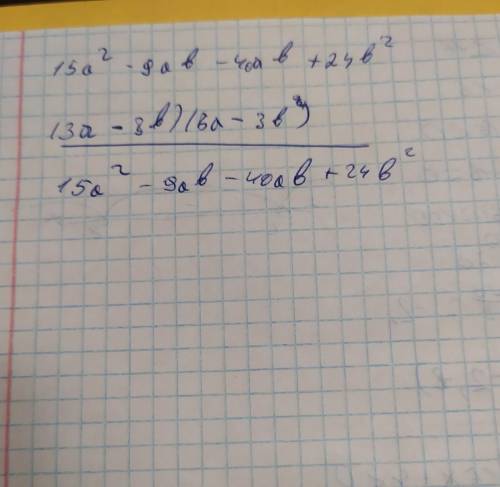 15a² - 9ab - 40ab + 24b²
(3a - 8b)(5a - 3b²)
15a² - 9ab - 40ab + 24b²